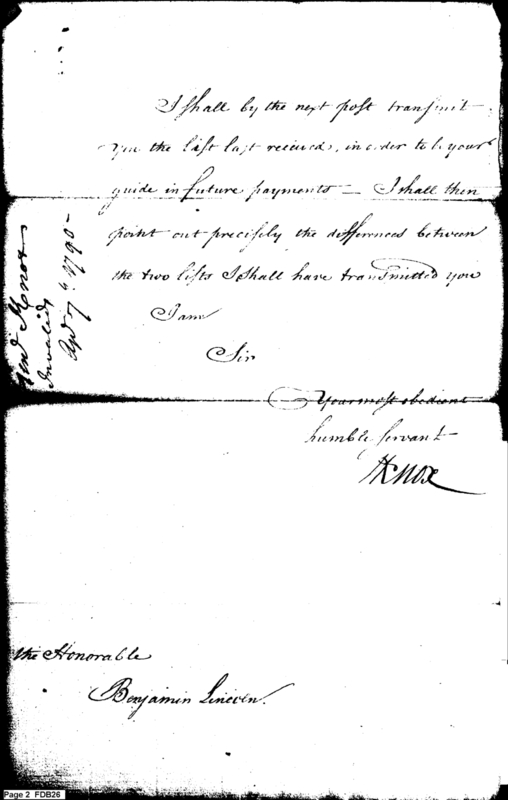 I shall by the next post transmit
you the list last received, in order to be your
guide in future payments — I shall then
point out precisely the differences between
the two lists I shall have transmitted you
I am
Sir
Your most obedient
humble servant
HKnox
the Honorable
Benjamin Lincoln.
Genl Knox
Invalids
Apl 7th 1790
Page 2 FDB26